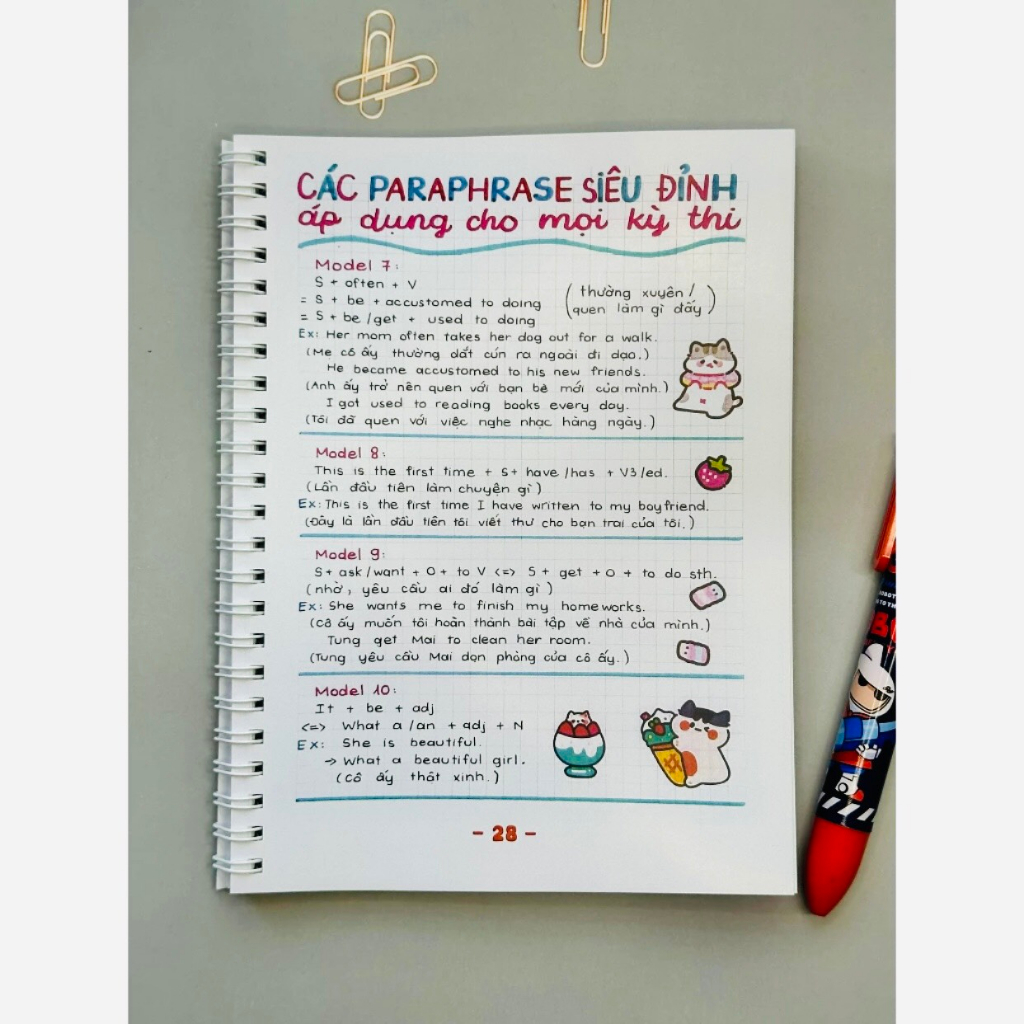 CÁC PARAPHRASE SIÊU ĐỈNH
áp dụng cho mọi kỳ thi
Model 7:
S + often + V
= S + be + accustomed to doing
= S + be / get + used to doing
(thường xuyên /
quen làm gì đấy)
Ex: Her mom often takes her dog out for a walk.
(Mẹ cô ấy thường dắt cún ra ngoài đi dạo.)
He became accustomed to his new friends.
(Anh ấy trở nên quen với bạn bè mới của mình.)
I got used to reading books every day.
(Tôi đã quen với việc nghe nhạc hàng ngày.)
Model 8:
This is the first time + S+ have /has + V3/ed.
(Lần đầu tiên làm chuyện gì)
Ex: This is the first time I have written to my boyfriend.
(Đây là lần đầu tiên tôi viết thư cho bạn trai của tôi.)
Model 9:
S+ ask/want + O+ to V <=> S + get + O + to do sth.
(nhờ, yêu cầu ai đó làm gì)
Ex: She wants me to finish my homeworks.
(Cô ấy muốn tôi hoàn thành bài tập về nhà của mình.)
Tung get Mai to clean her room.
(Tung yêu cầu Mai dọn phòng của cô ấy.)
Model 10:
It + be + adj
<=> What a /an + adj + N
Ex: She is beautiful.
→ What a beautiful girl.
(Cô ấy thật xinh.)
- 28 -